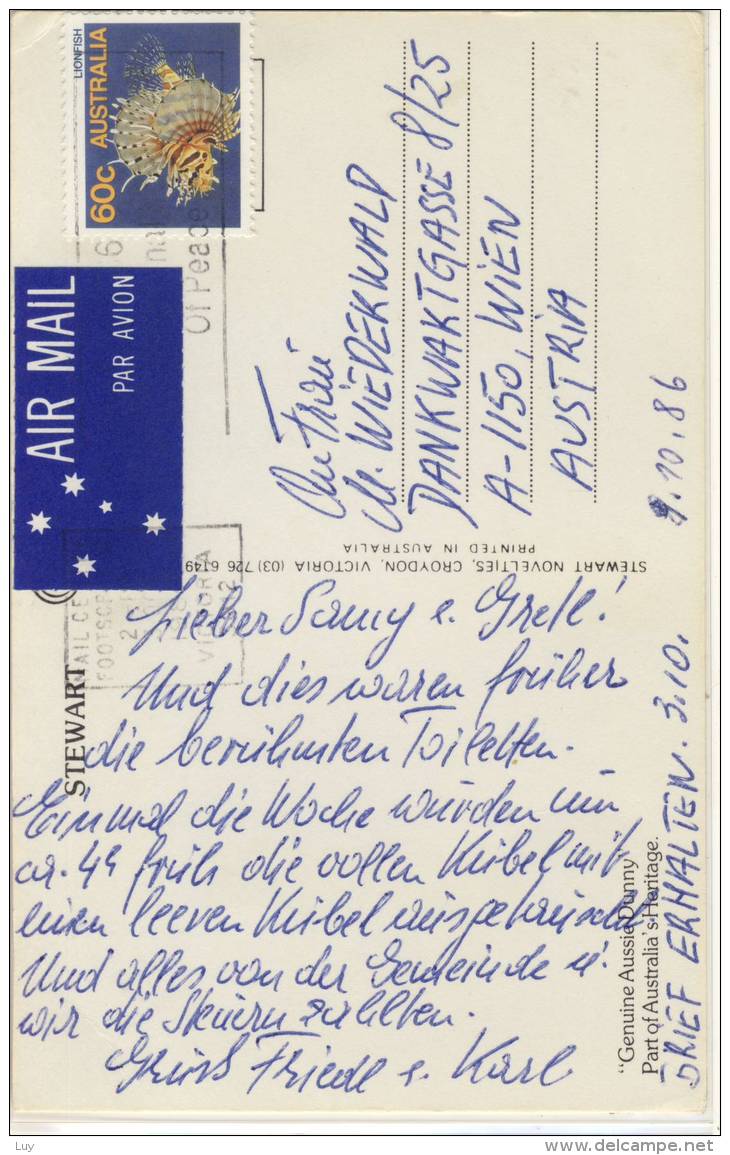 LIONFISH
AUSTRALIA
60c
Of Peace
AIR MAIL
PAR AVION
An Frau
M. WIEDERWALD
DANKWARTGASSE 8/25
A-1150, WIEN
AUSTRIA
STEWART NOVELTIES, CROYDON, VICTORIA (03) 726 6149
PRINTED IN AUSTRALIA
VICTORIA
STEWART
Lieber Samy u. Gretl!
Und dies waren früher
die berühmten Toiletten.
Einmal die Woche wurden um
ca. 4h früh die vollen Kübel mit
einen leeren Kübel ausgetauscht.
Und alles von der Gemeinde u.
wir die Steuern zahlten.
Gruß Friedl u. Karl
"Genuine Aussie Dunny"
Part of Australia's Heritage.
BRIEF ERHALTEN. 3.10.
.10.86
Luy
delcampe.net